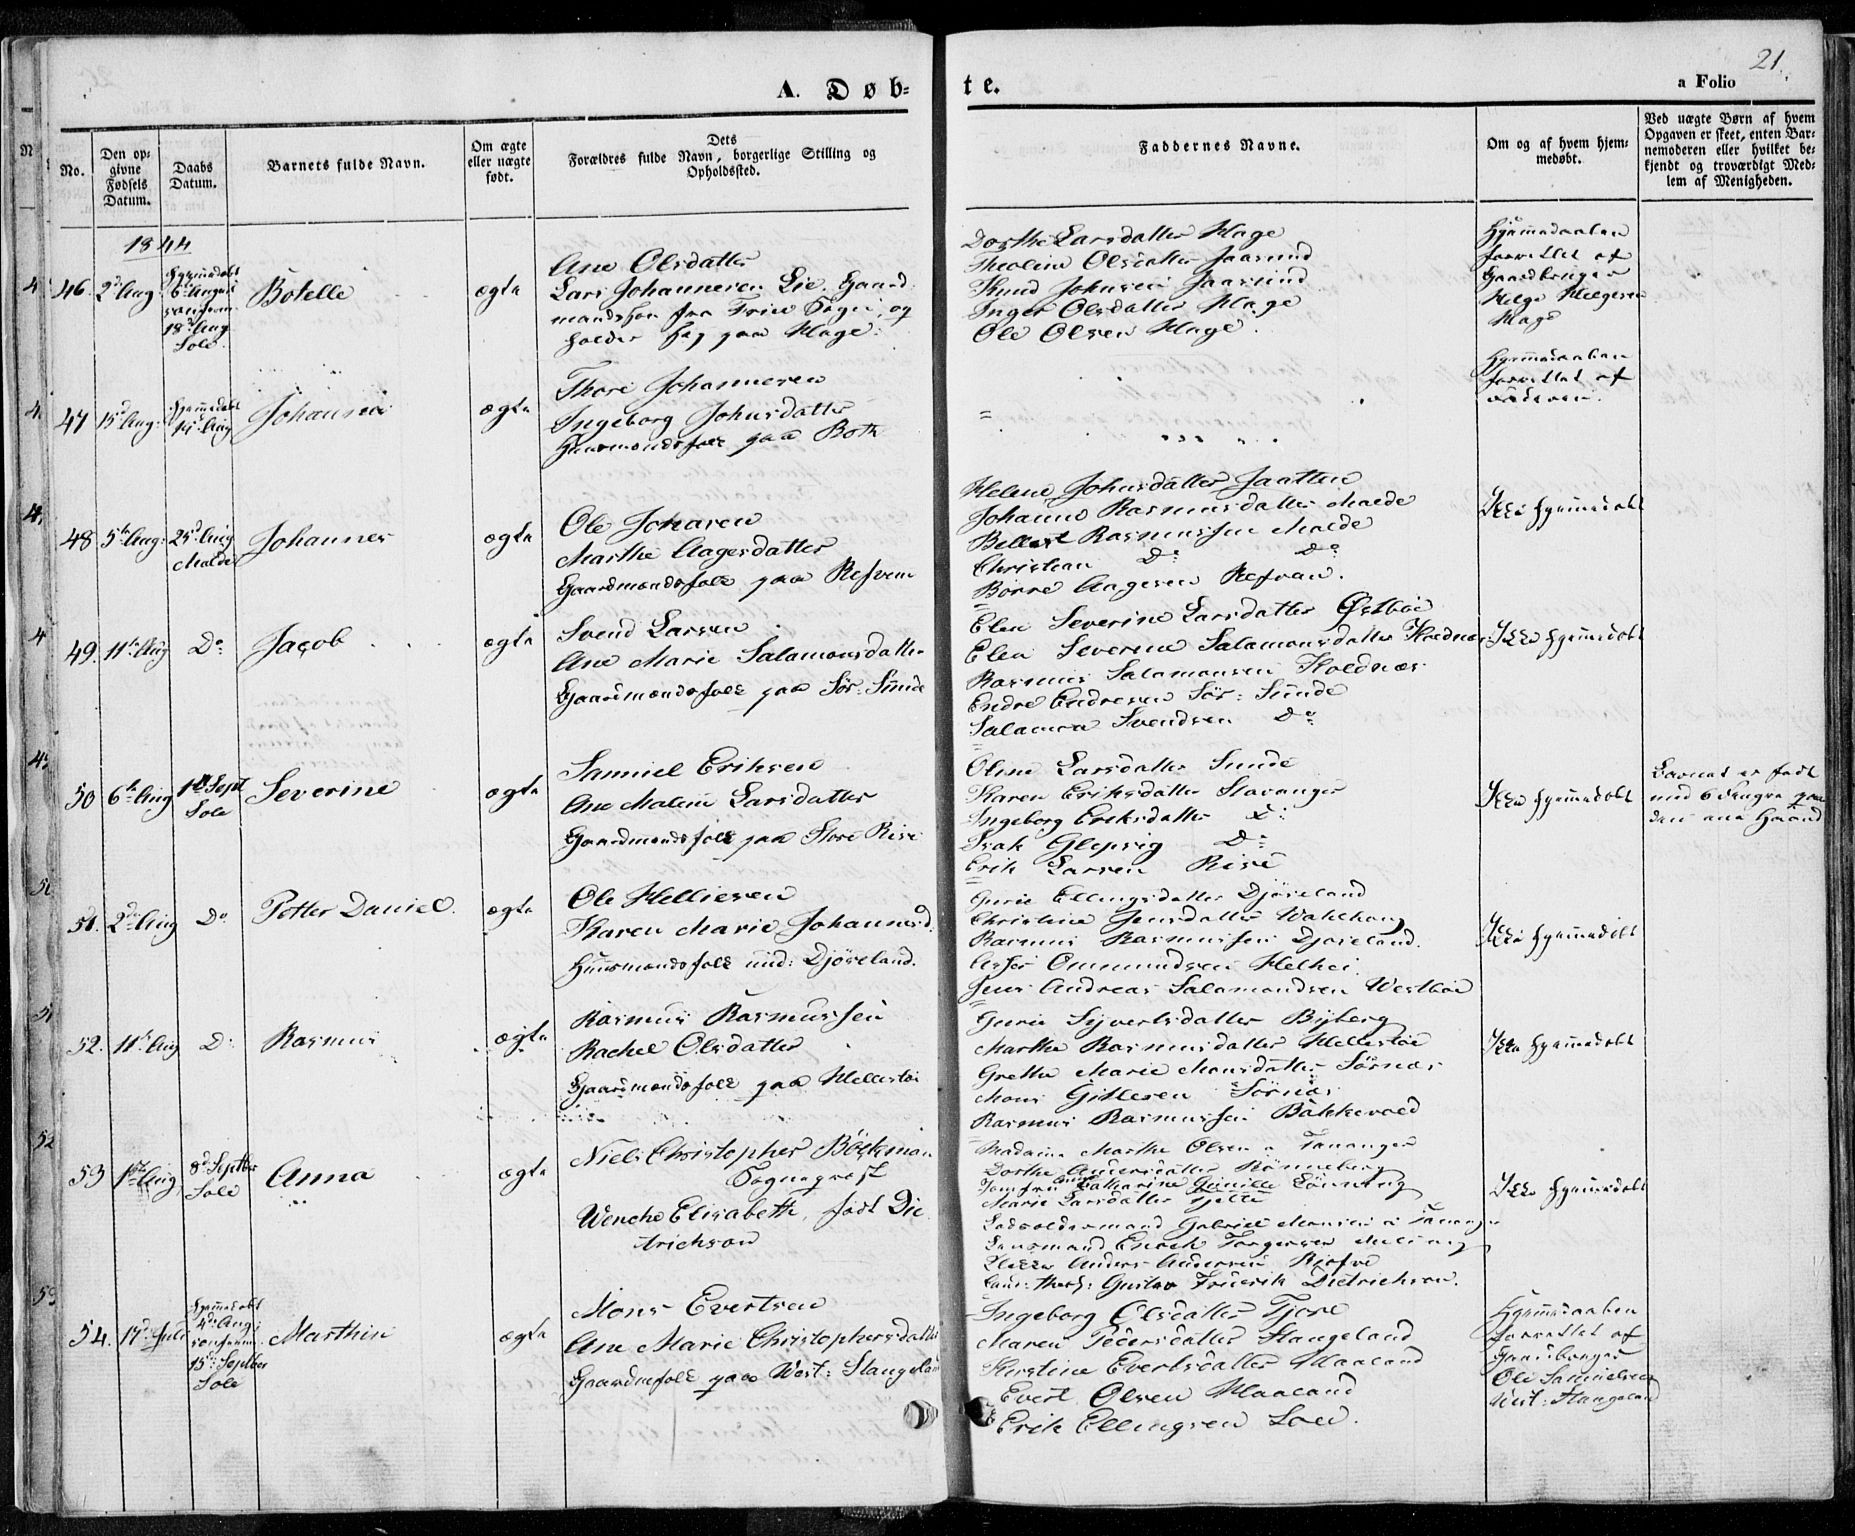 21.
A. Døb-
te.
a Folio
No.
Den op-
givne
Fødsels
Datum.
Daabs
Datum.
Barnets fulde Navn.
Om ægte
eller uægte
født.
Dets
Forældres fulde Navn, borgerlige Stilling og
Opholdssted.
Faddernes Navne.
Om og af hvem hjem-
medøbt.
Ved uægte Børn af hvem
Opgaven er skeet, enten Bar-
nemoderen eller hvilket be-
kjendt og troværdigt Med-
lem af Menigheden.
1844
46. 2d Aug
Hjemmedøbt
6te August
18de Aug
Sole.
Botelle
ægte
Ane Olsdatter
Lars Johannesen Lie, Gaard
mandssøn fra Sogn, og
holder sig paa Hage.
Dorthe Larsdatter Hage
Theoline Olsdatter Jaasund
Knud Johnsen Jaasund
Inger Olsdatter Hage
Ole Olsen Hage.
Hjemmedaaben
forrettet af
Gaardbruger
Helge Helgesen
Hage
47 15d Aug:
Hjemmedøbt
Aug
Johanna
ægte
Thore Johannesen
Ingeborg Johnsdatter
Huusmandsfolk paa Both
Hjemmedaaben
forrettet af
48 5te Aug: 25d Aug
Malde
Johannes
ægte
Ole Jonasen
Marthe Aagesdatter
Gaardmandsfolk paa Refven
Helene Johnsdatter Jaatten
Johanne Rasmusdatter Malde
Rasmussen Malde
Christian Do Do
Børre Aagesen Refven.
Ikke hjemmedøbt
49. 11te Aug Do
Jacob
ægte
Svend Larsen
Ane Marie Salamonsdatter
Gaardmandsfolk paa Sør: Sunde
Elen Severine Larsdatter Østbøe
Elen Severine Salamonsdatter
Rasmus Salamonsen
Endre Endresen Sør: Sunde
Salamon Svendsen Do
Ikke hjemmedøbt
50 6te Aug 1ste Sept
Sole
Severine
ægte
Samuel Eriksen
Ane Malene Larsdatter
Gaardmandsfolk paa Store Rise
Oline Larsdatter Sunde
Karen Eriksdatter Stavanger
Ingeborg Eriksdatter Do
Isak Do
Erik Larsen Rise
Ikke hjemmedøbt
Barnet er født
med 6 Fingre paa
den ene Haand
51. 2den Aug Do
Petter Daniel.
ægte
Ole Helliesen
Karen Marie Johannesd.
Huusmandsfolk und: Djøseland.
Gurie Ellingsdatter Djøseland
Christine Jensdatter
Rasmus Rasmussen Djøseland.
Ommundsen
Jens Andreas Salamondsen Westbøe
Ikke hjemmedøbt
52. 11te Aug Do
Rasmus
ægte
Rasmus Rasmussen
Rachel Olsdatter
Gaardmandsfolk paa Hellestøe
Gurie Syvertsdatter Byberg
Marthe Rasmusdatter Hellestøe
Grethe Marie Monsdatter Sørnæs
Mons Gitlesen Sørnæs
Rasmus Rasmussen Bakkevold
Ikke hjemmedøbt
53 1ste Aug 8de Septbr
Sole
Anna
ægte
Niels Christopher Bøckman
Sogneprest
Wenche Elisabeth, født Die
trichson
Madame Marthe Olsen Tananger
Dorthe Andersdatter Rønneberg
Jomfru Catharine
Marie Larsdatter
Gabriel Monsen Tananger
Lensmand Enoch Torgersen Meling
Anders Andersen
Cand: theol: Gustav Friderik Dietrichson.
Ikke hjemmedøbt
54. 17d Juli
Hjemmedøbt
4de Aug:
15de Septbr
Sole
Marthin
ægte
Mons Evertsen
Ane Marie Christophersdatter
Gaardmfolk paa West: Stangeland
Ingeborg Olsdatter Tjore
Maren Pedersdatter Stangeland
Kirstine Evertsdatter Haaland
Evert Olsen Haaland
Erik Ellingsen
Hjemmedaaben
forrettet af
Gaardbruger
Ole Samuelsen
West: Stangeland